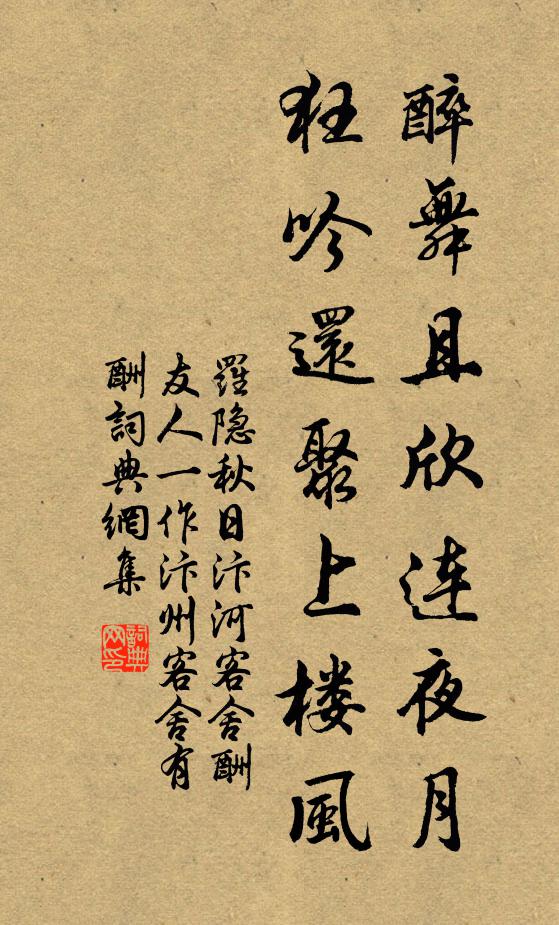 醉舞且欣连夜月
狂吟還聚上楼風
羅隐秋日汴河客舍酬
友人一作汴州客舍有
酬詞典網集
詞典
网印